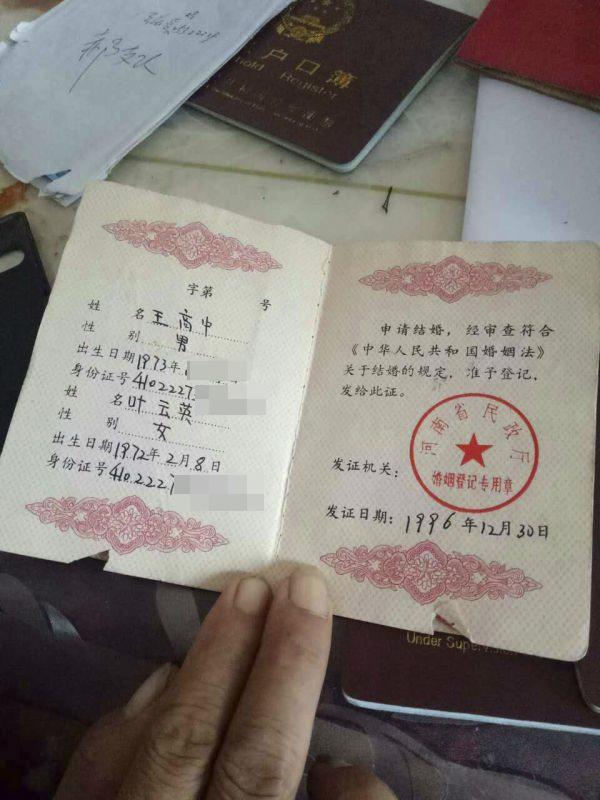 户口簿
hold Register
字第 号
姓 名 王高中
性 别 男
出生日期 1973年1
身份证号 4102227
姓 名 叶云英
性 别 女
出生日期 1972年2月8日
身份证号 4102227
申请结婚，经审查符合
《中华人民共和国婚姻法》
关于结婚的规定，准予登记，
发给此证。
河南省民政厅
婚姻登记专用章
发证机关：
发证日期：1996年12月30日
Under Supervision